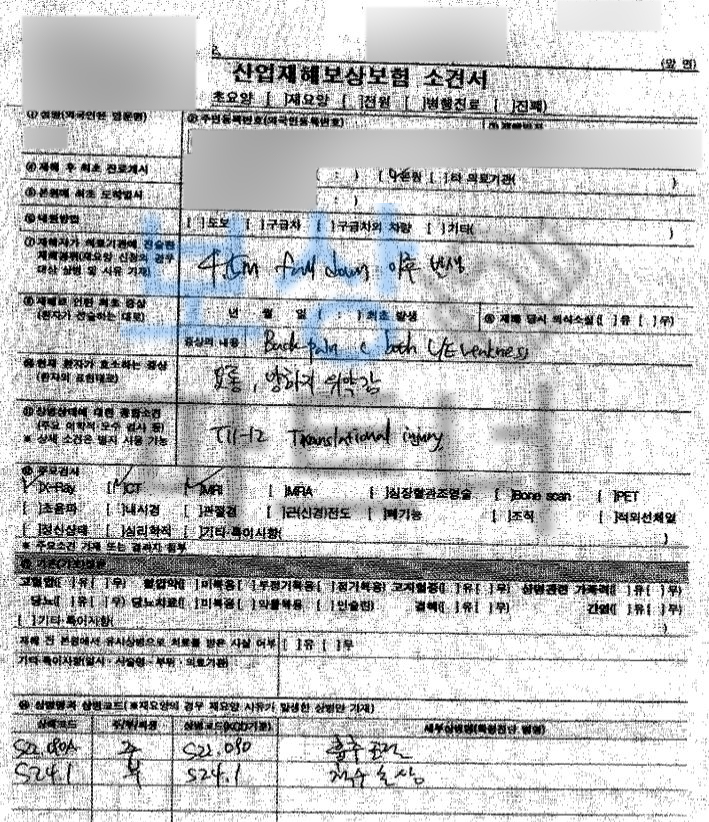 (앞 면)
산업재해보상보험 소견서
초요양 [ ]재요양 [ ]전원 [ ]병행진료 [ ]진폐)
① 성명(외국인은 영문명) ② 주민등록번호(외국인등록번호)
④ 재해 후 최초 진료개시 ( : ) 본원 [ ]타 의료기관( )
⑤ 본원에 최초 도착일시 ( : )
⑥ 내원방법 [ ]도보 [ ]구급차 [ ]구급차외 차량 [ ]기타( )
⑦ 재해자가 의료기관에 진술한
재해경위(재요양 신청의 경우
대상 상병 및 사유 기재)
fall down 이후 발생
⑧ 재해로 인한 최초 증상
(환자가 진술하는 대로)
년 월 일 ( : ) 최초 발생 ⑨ 재해 당시 의식소실([ ]유 [ ]무)
증상의 내용 Back pain c both L/E weakness
⑩ 현재 환자가 호소하는 증상
(환자의 표현대로)
요통, 양하지 위약감
⑪ 상병상태에 대한 종합소견
(주요 이학적·모수 검사 등)
※ 상세 소견은 별지 사용 가능
T11-12 Translational injury
⑫ 주요검사
[✓]X-Ray [✓]CT [✓]MRI [ ]MRA [ ]심장혈관조영술 [ ]Bone scan [ ]PET
[ ]초음파 [ ]내시경 [ ]관절경 [ ]근(신경)전도 [ ]폐기능 [ ]조직 [ ]적외선체열
[ ]정신상태 [ ]심리학적 [ ]기타·특이사항( )
※ 주요소견 기재 또는 결과지 첨부
고혈압([ ]유 [ ]무) 혈압약([ ]미복용 [ ]부정기복용 [ ]정기복용) 고지혈증([ ]유 [ ]무) 상병관련 가족력([ ]유 [ ]무)
당뇨([ ]유 [ ]무) 당뇨치료([ ]미복용 [ ]약물복용 [ ]인슐린) 결핵([ ]유 [ ]무) 간염([ ]유 [ ]무)
[ ]기타·특이사항( )
재해 전 본원에서 유사상병으로 치료를 받은 사실 여부 [ ]유 [ ]무
기타·특이사항(일시·시술명·부위·의료기관)
⑭ 상병명과 상병코드(※재요양의 경우 재요양 사유가 발생한 상병만 기재)
상해코드 주/부/파생 상병코드(KCD기준) 세부상병명(특별진단 병명)
S22.080A 주 S22.080 흉추 골절
S24.1 부 S24.1 척수 손상
보상
파트너